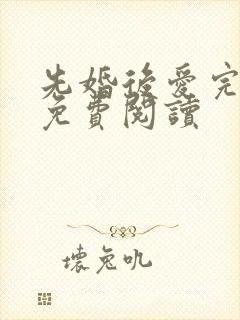 先婚後愛完
免費閱讀
壞兔吼